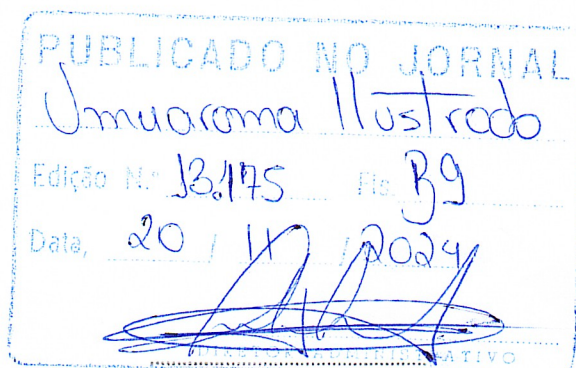 PUBLICADO NO JORNAL
Umuarama Ilustrado
Edição N.º 13.175 Fls. B9
Data, 20 / 11 / 2024
DIRETOR ADMINISTRATIVO